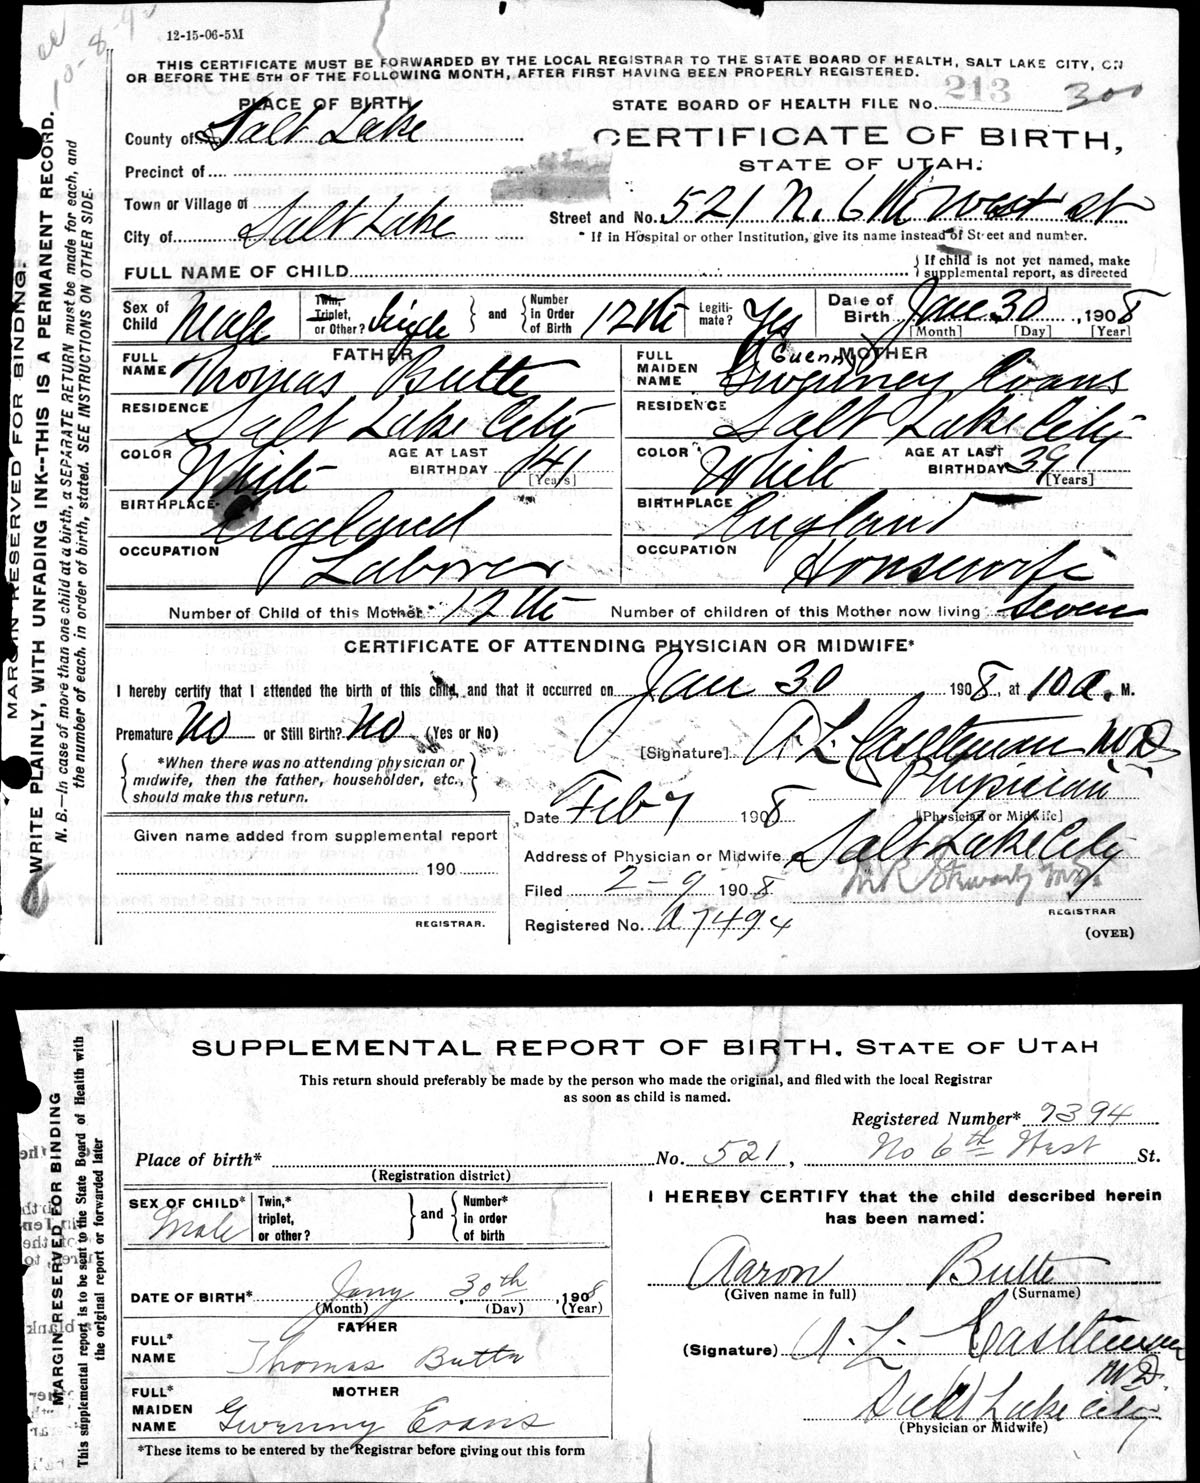 12-15-06-5M
THIS CERTIFICATE MUST BE FORWARDED BY THE LOCAL REGISTRAR TO THE STATE BOARD OF HEALTH, SALT LAKE CITY, ON
OR BEFORE THE 5TH OF THE FOLLOWING MONTH, AFTER FIRST HAVING BEEN PROPERLY REGISTERED.
PLACE OF BIRTH
STATE BOARD OF HEALTH FILE No. 213 300
County of Salt Lake
CERTIFICATE OF BIRTH,
STATE OF UTAH.
Precinct of
Town or Village of
Street and No. 521 N. 6th West St
City of Salt Lake
* If in Hospital or other Institution, give its name instead of Street and number.
FULL NAME OF CHILD
If child is not yet named, make
supplemental report, as directed
Sex of Child Male
Twin, Triplet, or Other? Single
and Number in Order of Birth 12th
Legitimate? Yes
Date of Birth Jan 30, 1908
[Month] [Day] [Year]
FATHER
MOTHER
FULL NAME Thomas Butte
FULL MAIDEN NAME (Guenny) Evans
RESIDENCE Salt Lake City
RESIDENCE Salt Lake City
COLOR White AGE AT LAST BIRTHDAY 41 [Years]
COLOR White AGE AT LAST BIRTHDAY 39 [Years]
BIRTHPLACE England
BIRTHPLACE England
OCCUPATION Laborer
OCCUPATION Housewife
Number of Child of this Mother 12th Number of children of this Mother now living Seven
CERTIFICATE OF ATTENDING PHYSICIAN OR MIDWIFE*
I hereby certify that I attended the birth of this child, and that it occurred on Jan 30 1908, at 10 a. M.
Premature No or Still Birth? No (Yes or No)
[Signature] A. L. Castleman M.D.
*When there was no attending physician or
midwife, then the father, householder, etc.,
should make this return.
Physician
[Physician or Midwife]
Date Feb 7 1908
Given name added from supplemental report
190
REGISTRAR.
Address of Physician or Midwife Salt Lake City
Filed 2-9 1908 M.D.
REGISTRAR
Registered No. a7494
(OVER)
MARGIN RESERVED FOR BINDING.
WRITE PLAINLY, WITH UNFADING INK--THIS IS A PERMANENT RECORD.
N. B.—In case of more than one child at a birth, a SEPARATE RETURN must be made for each, and
the number of each, in order of birth, stated. SEE INSTRUCTIONS ON OTHER SIDE.
SUPPLEMENTAL REPORT OF BIRTH, STATE OF UTAH
This return should preferably be made by the person who made the original, and filed with the local Registrar
as soon as child is named.
Registered Number* 7394
Place of birth* No. 521, No 6th West St.
(Registration district)
SEX OF CHILD* Male
Twin,* triplet, or other?
and Number* in order of birth
I HEREBY CERTIFY that the child described herein
has been named:
Aaron Butte
(Given name in full) (Surname)
DATE OF BIRTH* Jany 30th, 1908
(Month) (Day) (Year)
FATHER
FULL* NAME Thomas Butte
(Signature) A. L. Castleman M.D.
MOTHER
FULL* MAIDEN NAME Gwenny Evans
Salt Lake City
(Physician or Midwife)
*These items to be entered by the Registrar before giving out this form
MARGIN RESERVED FOR BINDING
This supplemental report is to be sent to the State Board of Health with
the original report or forwarded later